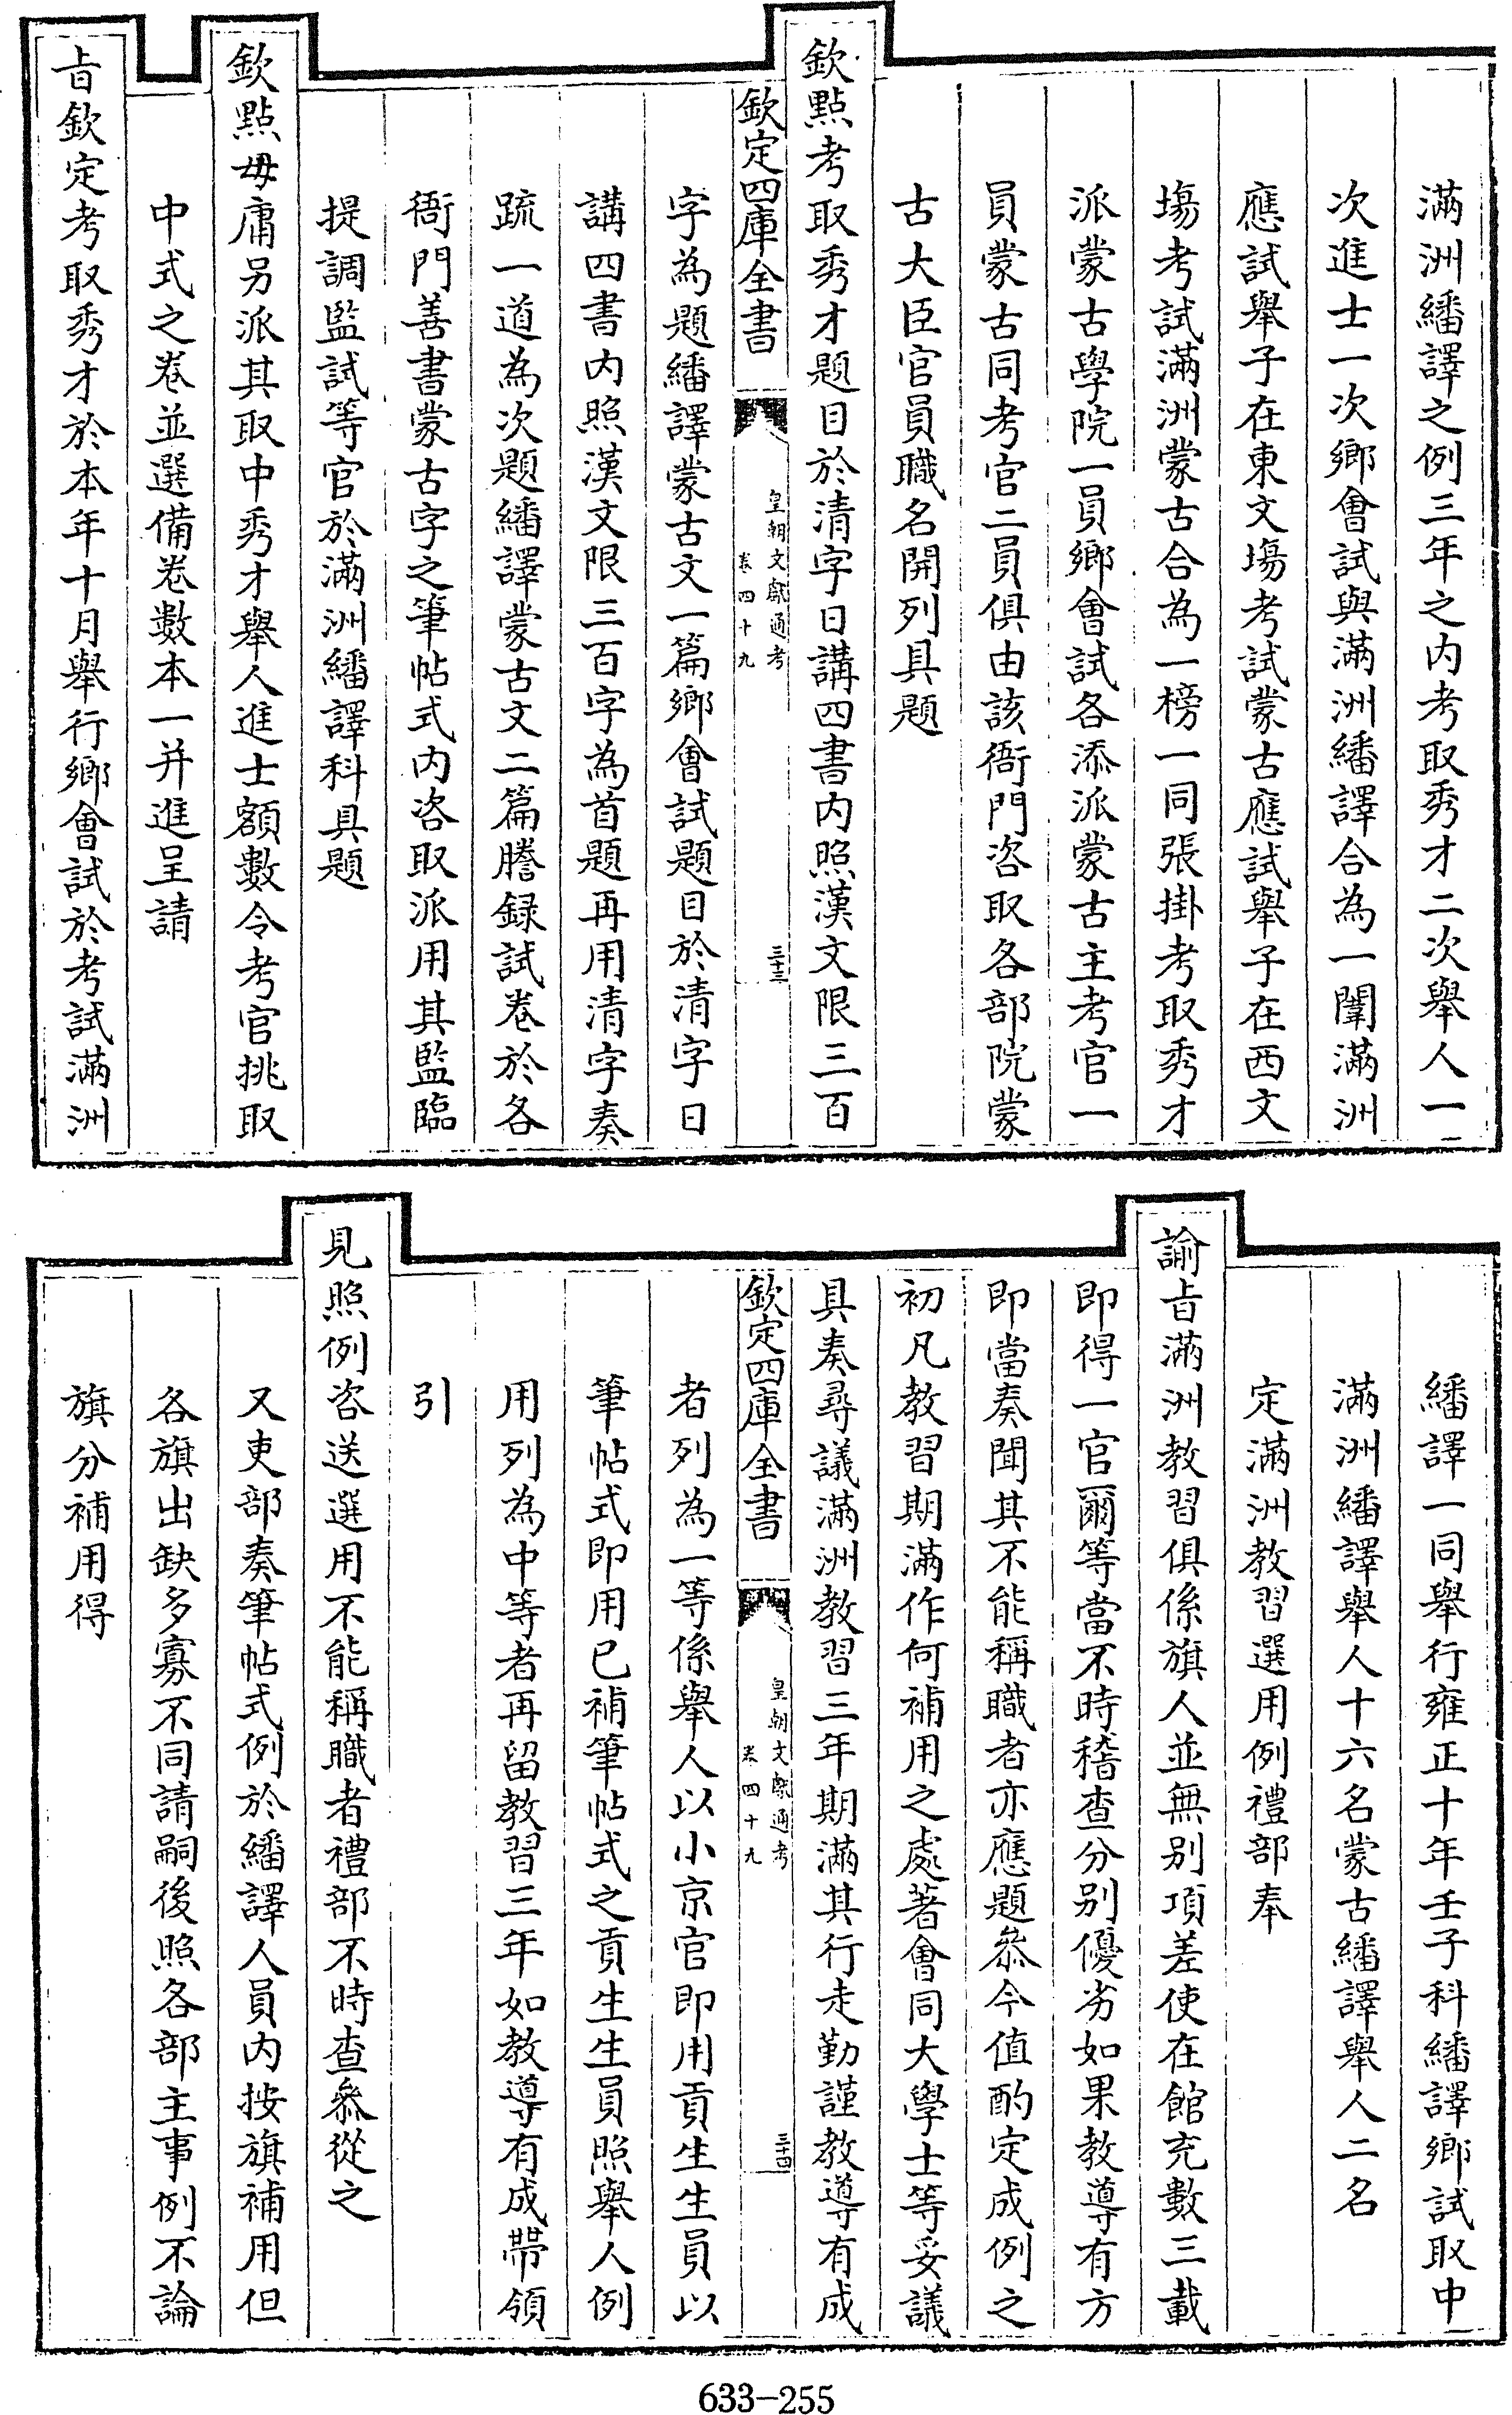 滿洲繙譯之例三年之内考取秀才二次舉人一
次進士一次鄉會試與滿洲繙譯合為一闈滿洲
應試舉子在東文場考試蒙古應試舉子在西文
塲考試滿洲蒙古合為一榜一同張掛考取秀才
派蒙古學院一員鄉會試各添派蒙古主考官一
員蒙古同考官二員俱由該衙門咨取各部院蒙
古大臣官員職名開列具題
欽點考取秀才題目於清字日講四書内照漢文限三百
欽定四庫全書
皇朝文獻通考
卷四十九
三十三
字為題繙譯蒙古文一篇鄉會試題目於清字日
講四書内照漢文限三百字為首題再用清字奏
疏一道為次題繙譯蒙古文二篇謄録試卷於各
衙門善書蒙古字之筆帖式内咨取派用其監臨
提調監試等官於滿洲繙譯科具題
欽點毋庸另派其取中秀才舉人進士額數令考官挑取
中式之卷並選備卷數本一并進呈請
㫖欽定考取秀才於本年十月舉行鄉會試於考試滿洲
繙譯一同舉行雍正十年壬子科繙譯鄉試取中
滿洲繙譯舉人十六名蒙古繙譯舉人二名
定滿洲教習選用例禮部奉
諭㫖滿洲教習俱係旗人並無别項差使在館充數三載
即得一官爾等當不時稽查分别優劣如果教導有方
即當奏聞其不能稱職者亦應題叅今值酌定成例之
初凡教習期滿作何補用之處著會同大學士等妥議
具奏尋議滿洲教習三年期滿其行走勤謹教導有成
欽定四庫全書
皇朝文獻通考
卷四十九
三十四
者列為一等係舉人以小京官即用貢生生員以
筆帖式即用已補筆帖式之貢生生員照舉人例
用列為中等者再留教習三年如教導有成帶領
引
見照例咨送選用不能稱職者禮部不時查叅從之
又吏部奏筆帖式例於繙譯人員内按旗補用但
各旗出缺多寡不同請嗣後照各部主事例不論
旗分補用得
633-255